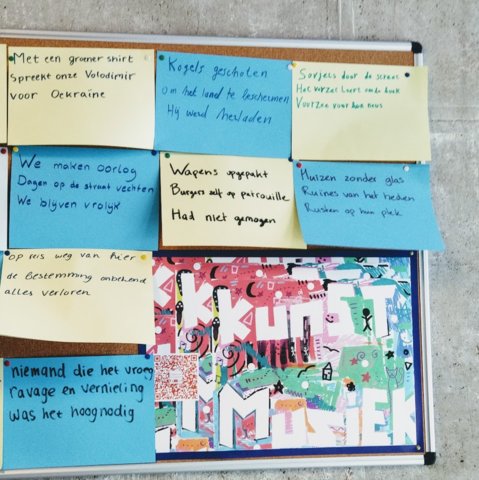 Met een groener shirt
spreekt onze Volodimir
voor Oekraine
Kogels gescholen
om het land te beschermen
Hij werd herladen
door de
Het
voor
We maken oorlog
Dagen op de straat vechten
We blijven vrolijk
Wapens opgepakt
Burgers zelf op patrouille
Had niet gemogen
Huizen zonder glas
Ruines van het heden
Rusten op hun plek
op reis weg van hier
de Bestemming onbekend
alles verloren
niemand die het vroeg
ravage en vernieling
was het hoognodig
KUNST
MUNIEK